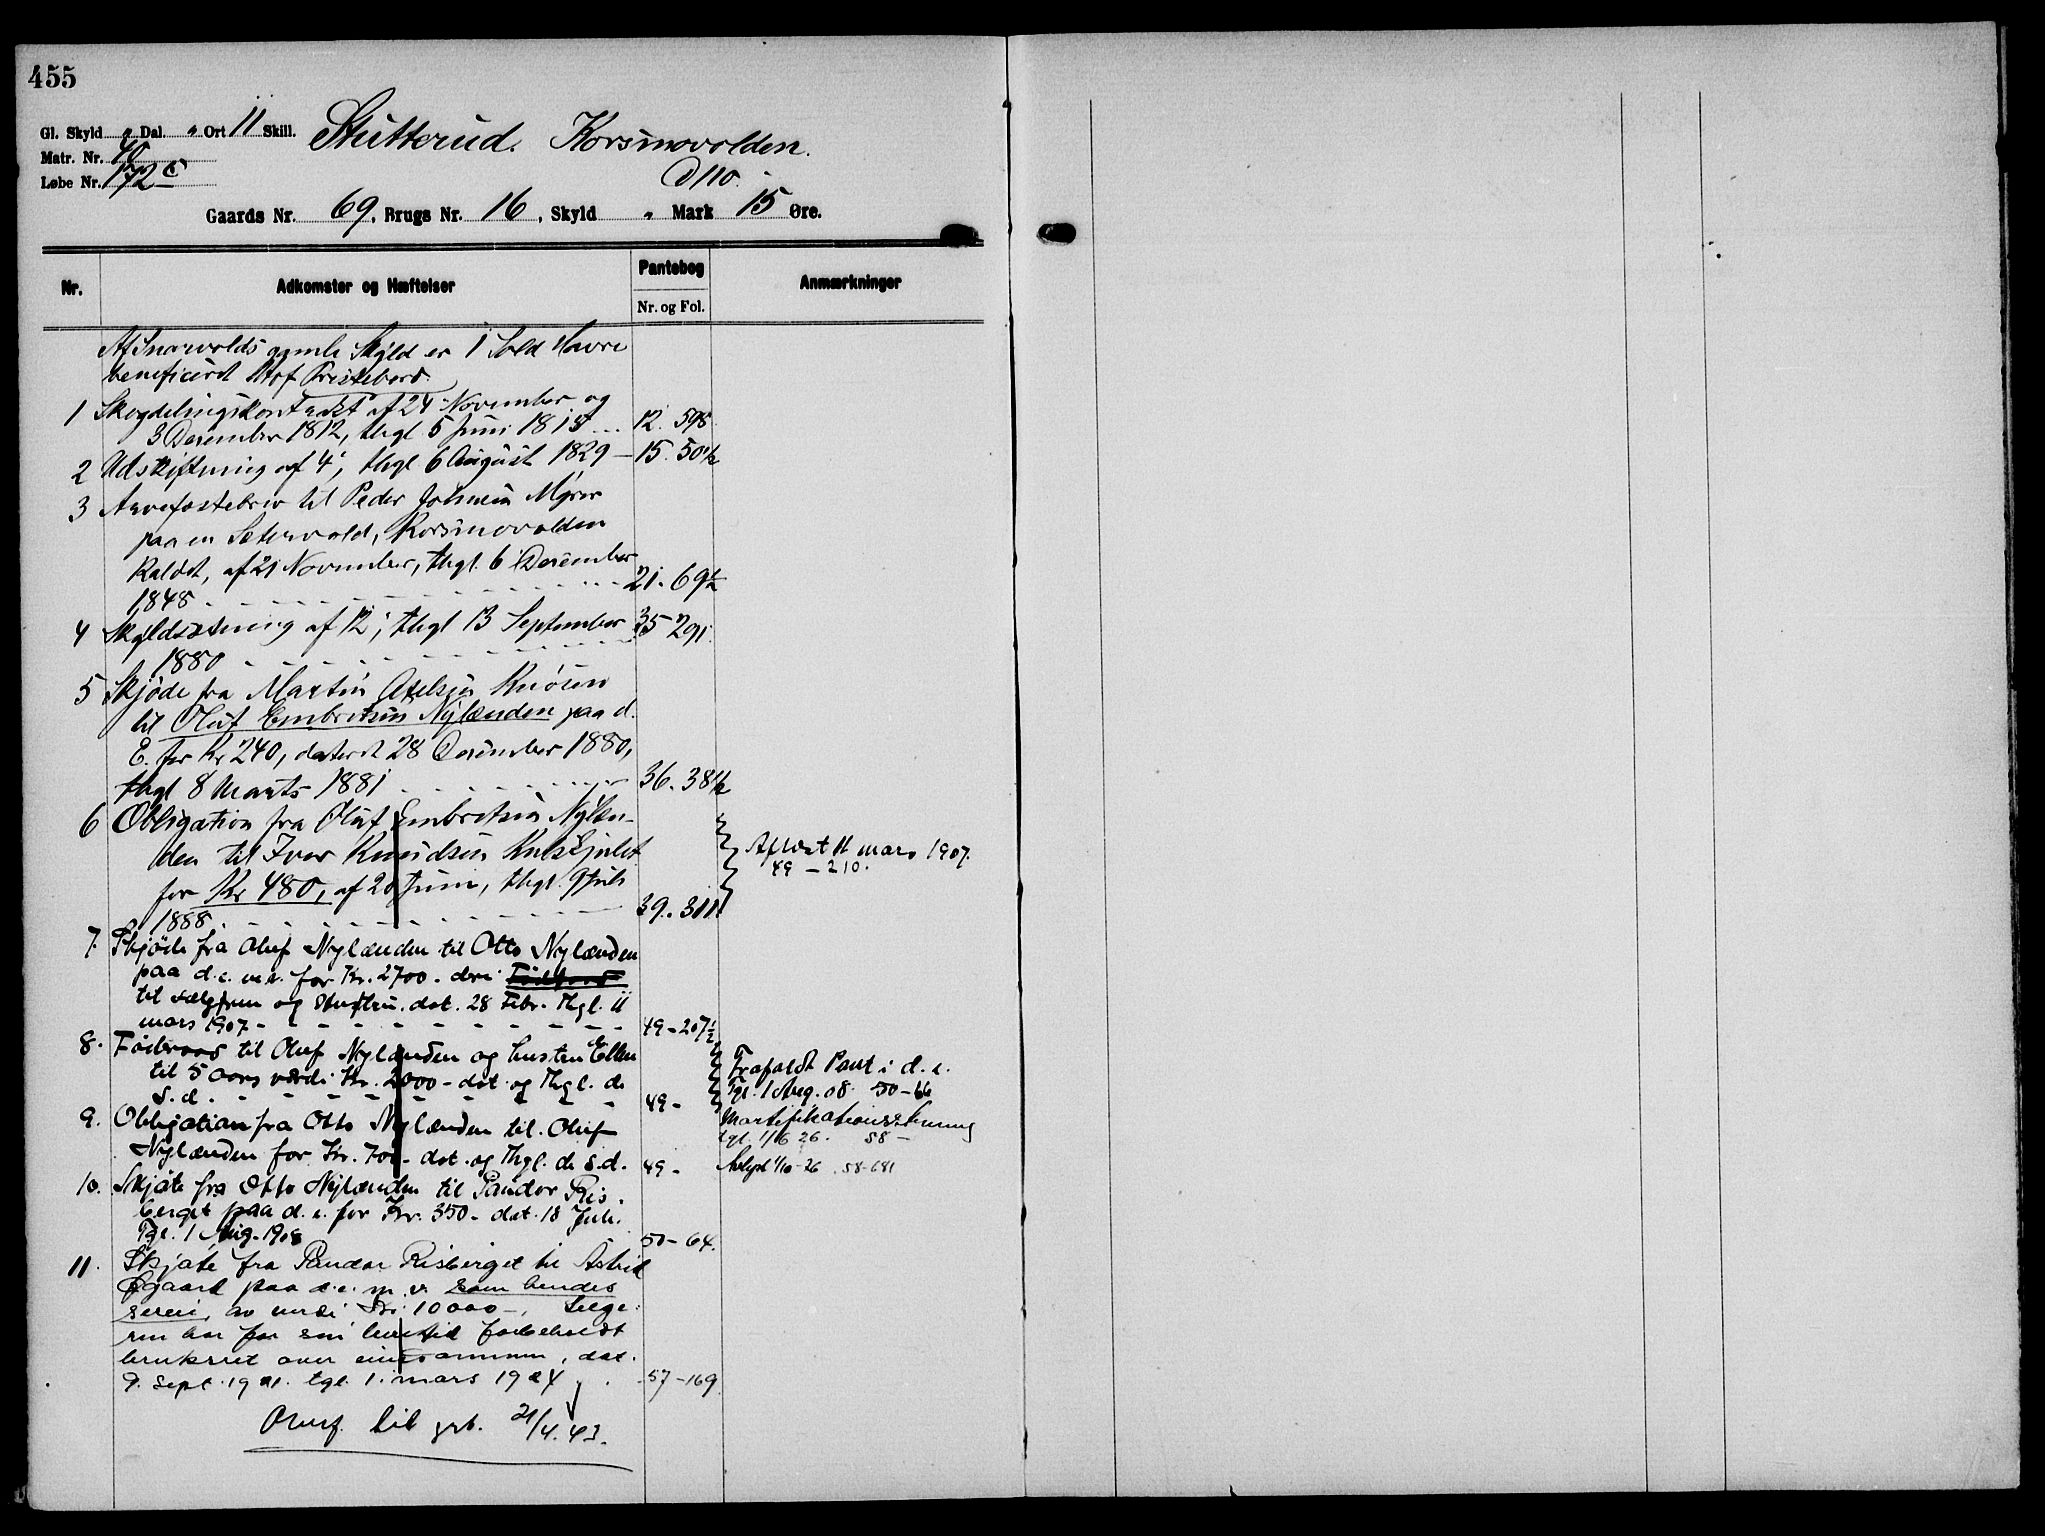 455
Gl. Skyld „ Dal. „ Ort 11 Skill.
Stutterud. Korsmovolden.
Matr. Nr. 40
Løbe Nr. 172 c
D 110.
Gaards Nr. 69, Brugs Nr. 16, Skyld „ Mark 15 Øre.
Nr.
Adkomster og Hæftelser
Pantebog
Nr. og Fol.
Anmærkninger
Af gamle Skyld er 1 Sold Havre
beneficeret Hof Prestebord.
1 Skogdelingskontrakt af 24 November og
3 December 1812, thgl 5 Juni 1813 ... 12. 598.
2 Udskiftning af 4', thgl 6 August 1829 — 15. 50½
3 Arvefæstebrev til Peder Johnsen Myrer
paa en Sætervold, Korsmovolden
kaldet, af 21 November, thgl. 6 December
1848 - - - 21. 69½
4 Skyldsætning af 12', thgl 13 September 35 291.
1880 - - -
5 Skjøde fra Martin Axelsen Knøsen
til Oluf Embretsen Nylænden paa d.
E. for Kr 240, dateret 28 December 1880,
thgl 8 Marts 1881 - - - 36. 38½
6 Obligation fra Oluf Embretsen Nylæn-
den til Iver Knudsen
for Kr 480, af 20 Juni, thgl. 9 Juli
1888. - - - 39. 311.
Aflæst 11 mars 1907.
49 — 210.
7. Skjöde fra Oluf Nylænden til Otto Nylænden
paa d. e. m. v. for Kr. 2700.- deri
til sælgeren og Hustru. dat. 28 Febr. Thgl. 11
mars 1907 - - - 49 - 207½
8. Födoraad til Oluf Nylænden og hustru Ellen
til 5 aars værdi Kr. 2000 - dat. og Thgl. d.
s. d. - - - 49 -
Frafaldt Pant i d. e.
Tgl. 1 Aug. 08. 50 - 66
9. Obligation fra Otto Nylænden til Oluf
Nylænden for Kr. 700 - dat. og Thgl. d. s. d. 49 -
Mortifikationsstevning
tgl. 1/6 26. 58 —
Avlyst 1/10-26 58-681
10. Skjöte fra Otto Nylænden til Pander Ris-
berget paa d. e. for Kr. 350 - dat. 18 Juli.
Tgl. 1 Aug. 1908 50 - 64.
11. Skjøte fra Pander Risberget til Astrid
Øgaard paa d. e. m. v. som hendes
særeie, av værdi Kr. 10 000 —, Sælge-
ren har for sin levetid forbeholdt
bruksret over eiendommen, dat.
9. Sept. 1921. tgl. 1. mars 1924 57 - 169
Overf. til grb. 21/4. 43.